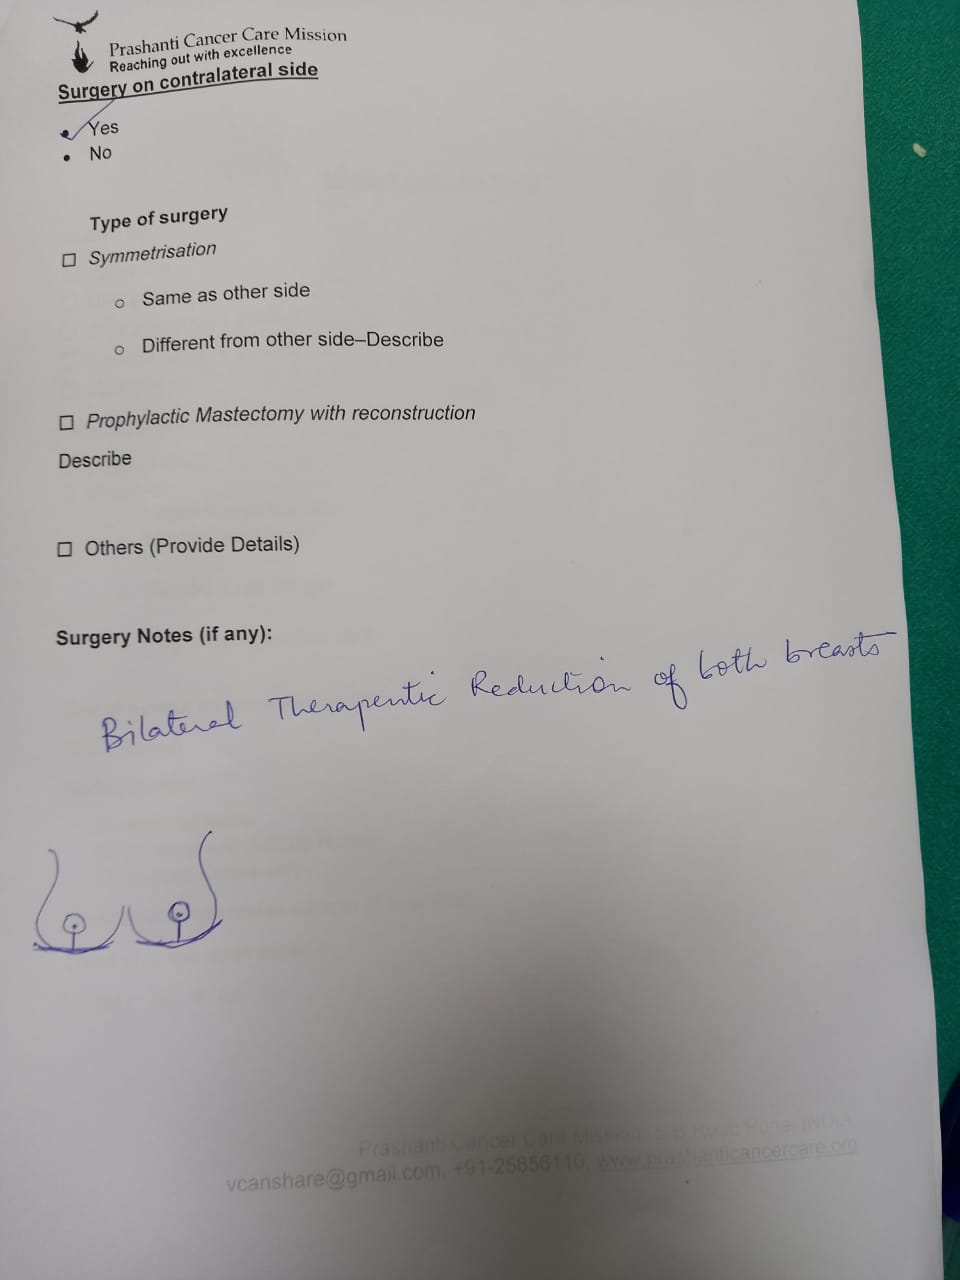 Prashanti Cancer Care Mission
Reaching out with excellence
Surgery on contralateral side
• Yes
• No
Type of surgery
☐ Symmetrisation
o Same as other side
o Different from other side–Describe
☐ Prophylactic Mastectomy with reconstruction
Describe
☐ Others (Provide Details)
Surgery Notes (if any):
Bilateral Therapeutic Reduction of both breasts
Prashanti Cancer Care Mission, Road Pune, INDIA
vcanshare@gmail.com, +91-25656110, www.prashanticancercare.org